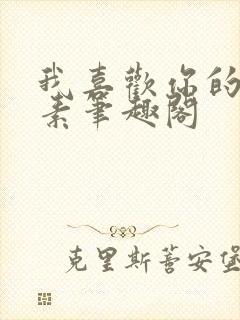 我喜歡你的
素筆趣閣
克里斯蒂安堡